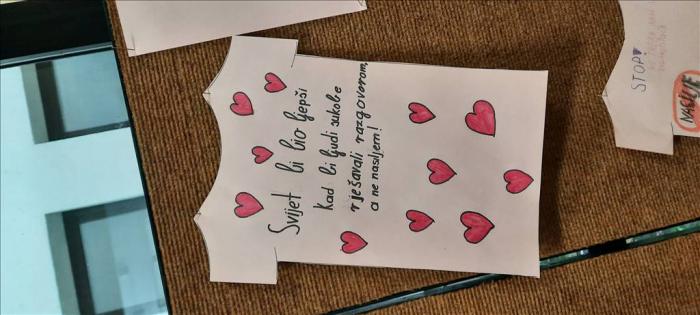 Svijet bi bio ljepši
kad bi ljudi sukobe
rješavali razgovorom,
a ne nasiljem!
STOP
NASILJE